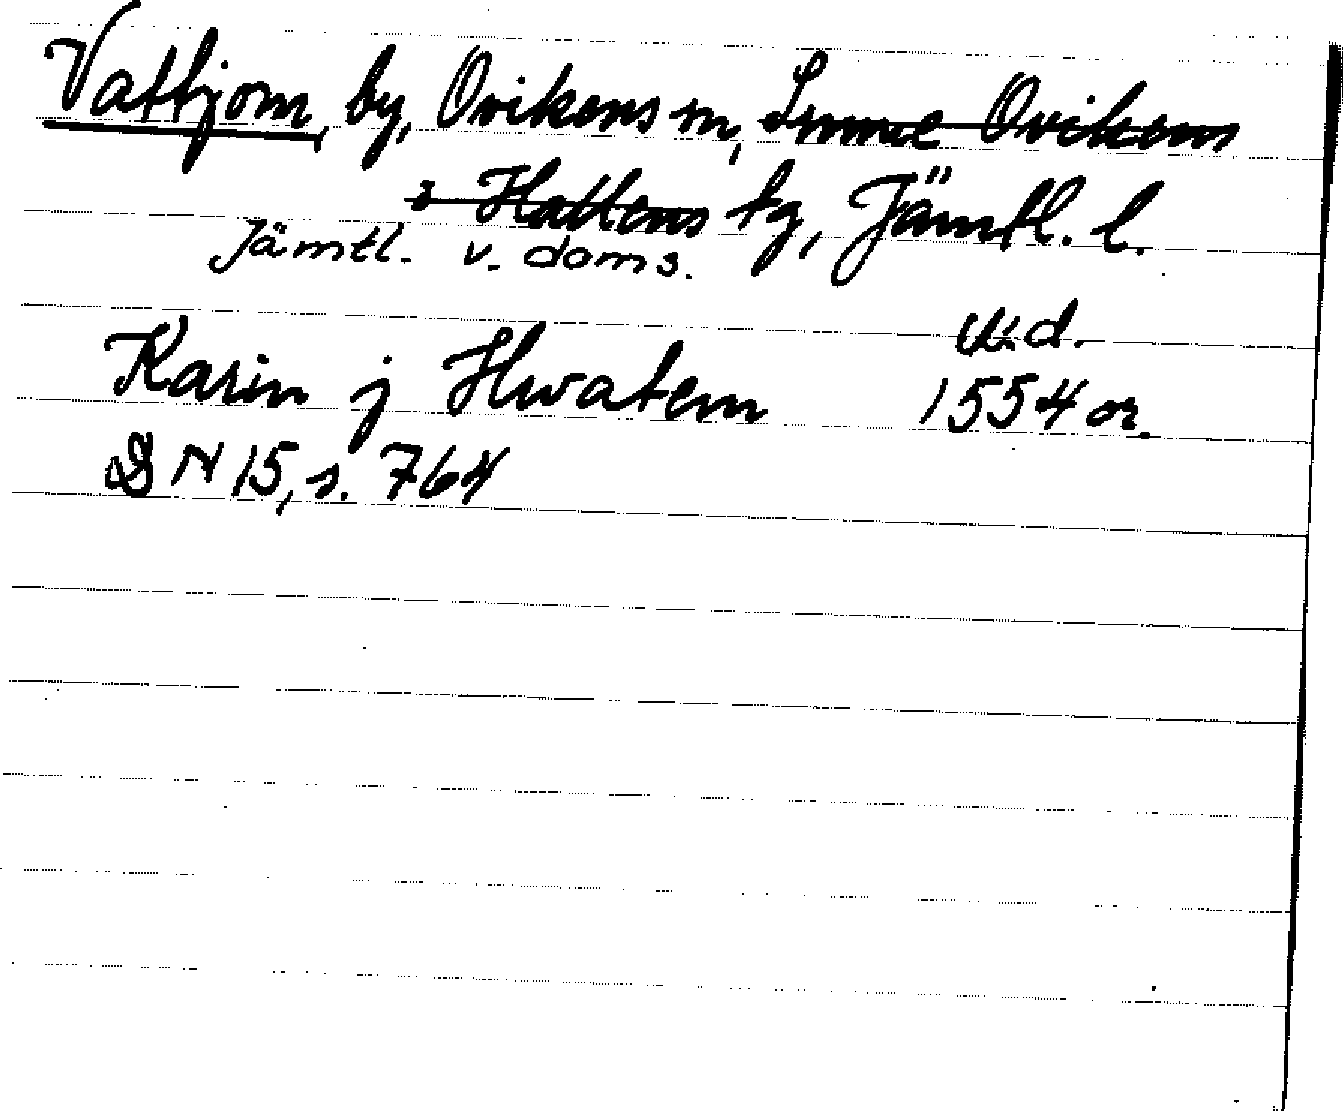 Vattjom, by, Ovikens sn, Sunne Ovikens
o Hallens tg, Jämtl. l.
Jämtl. v. doms.
u.d.
Karin j Hwatem 1554 or.
DN 15, s. 764